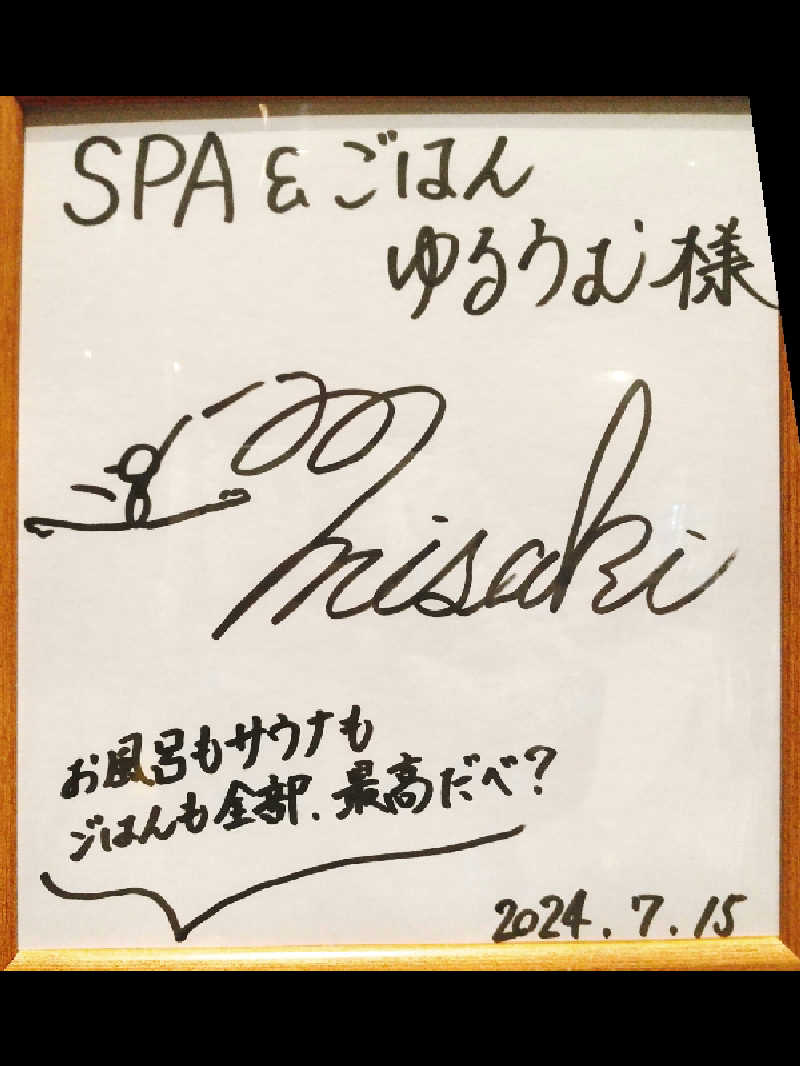 SPA&ごはん
ゆるうむ様
misaki
お風呂もサウナも
ごはんも全部、最高だべ?
2024.7.15